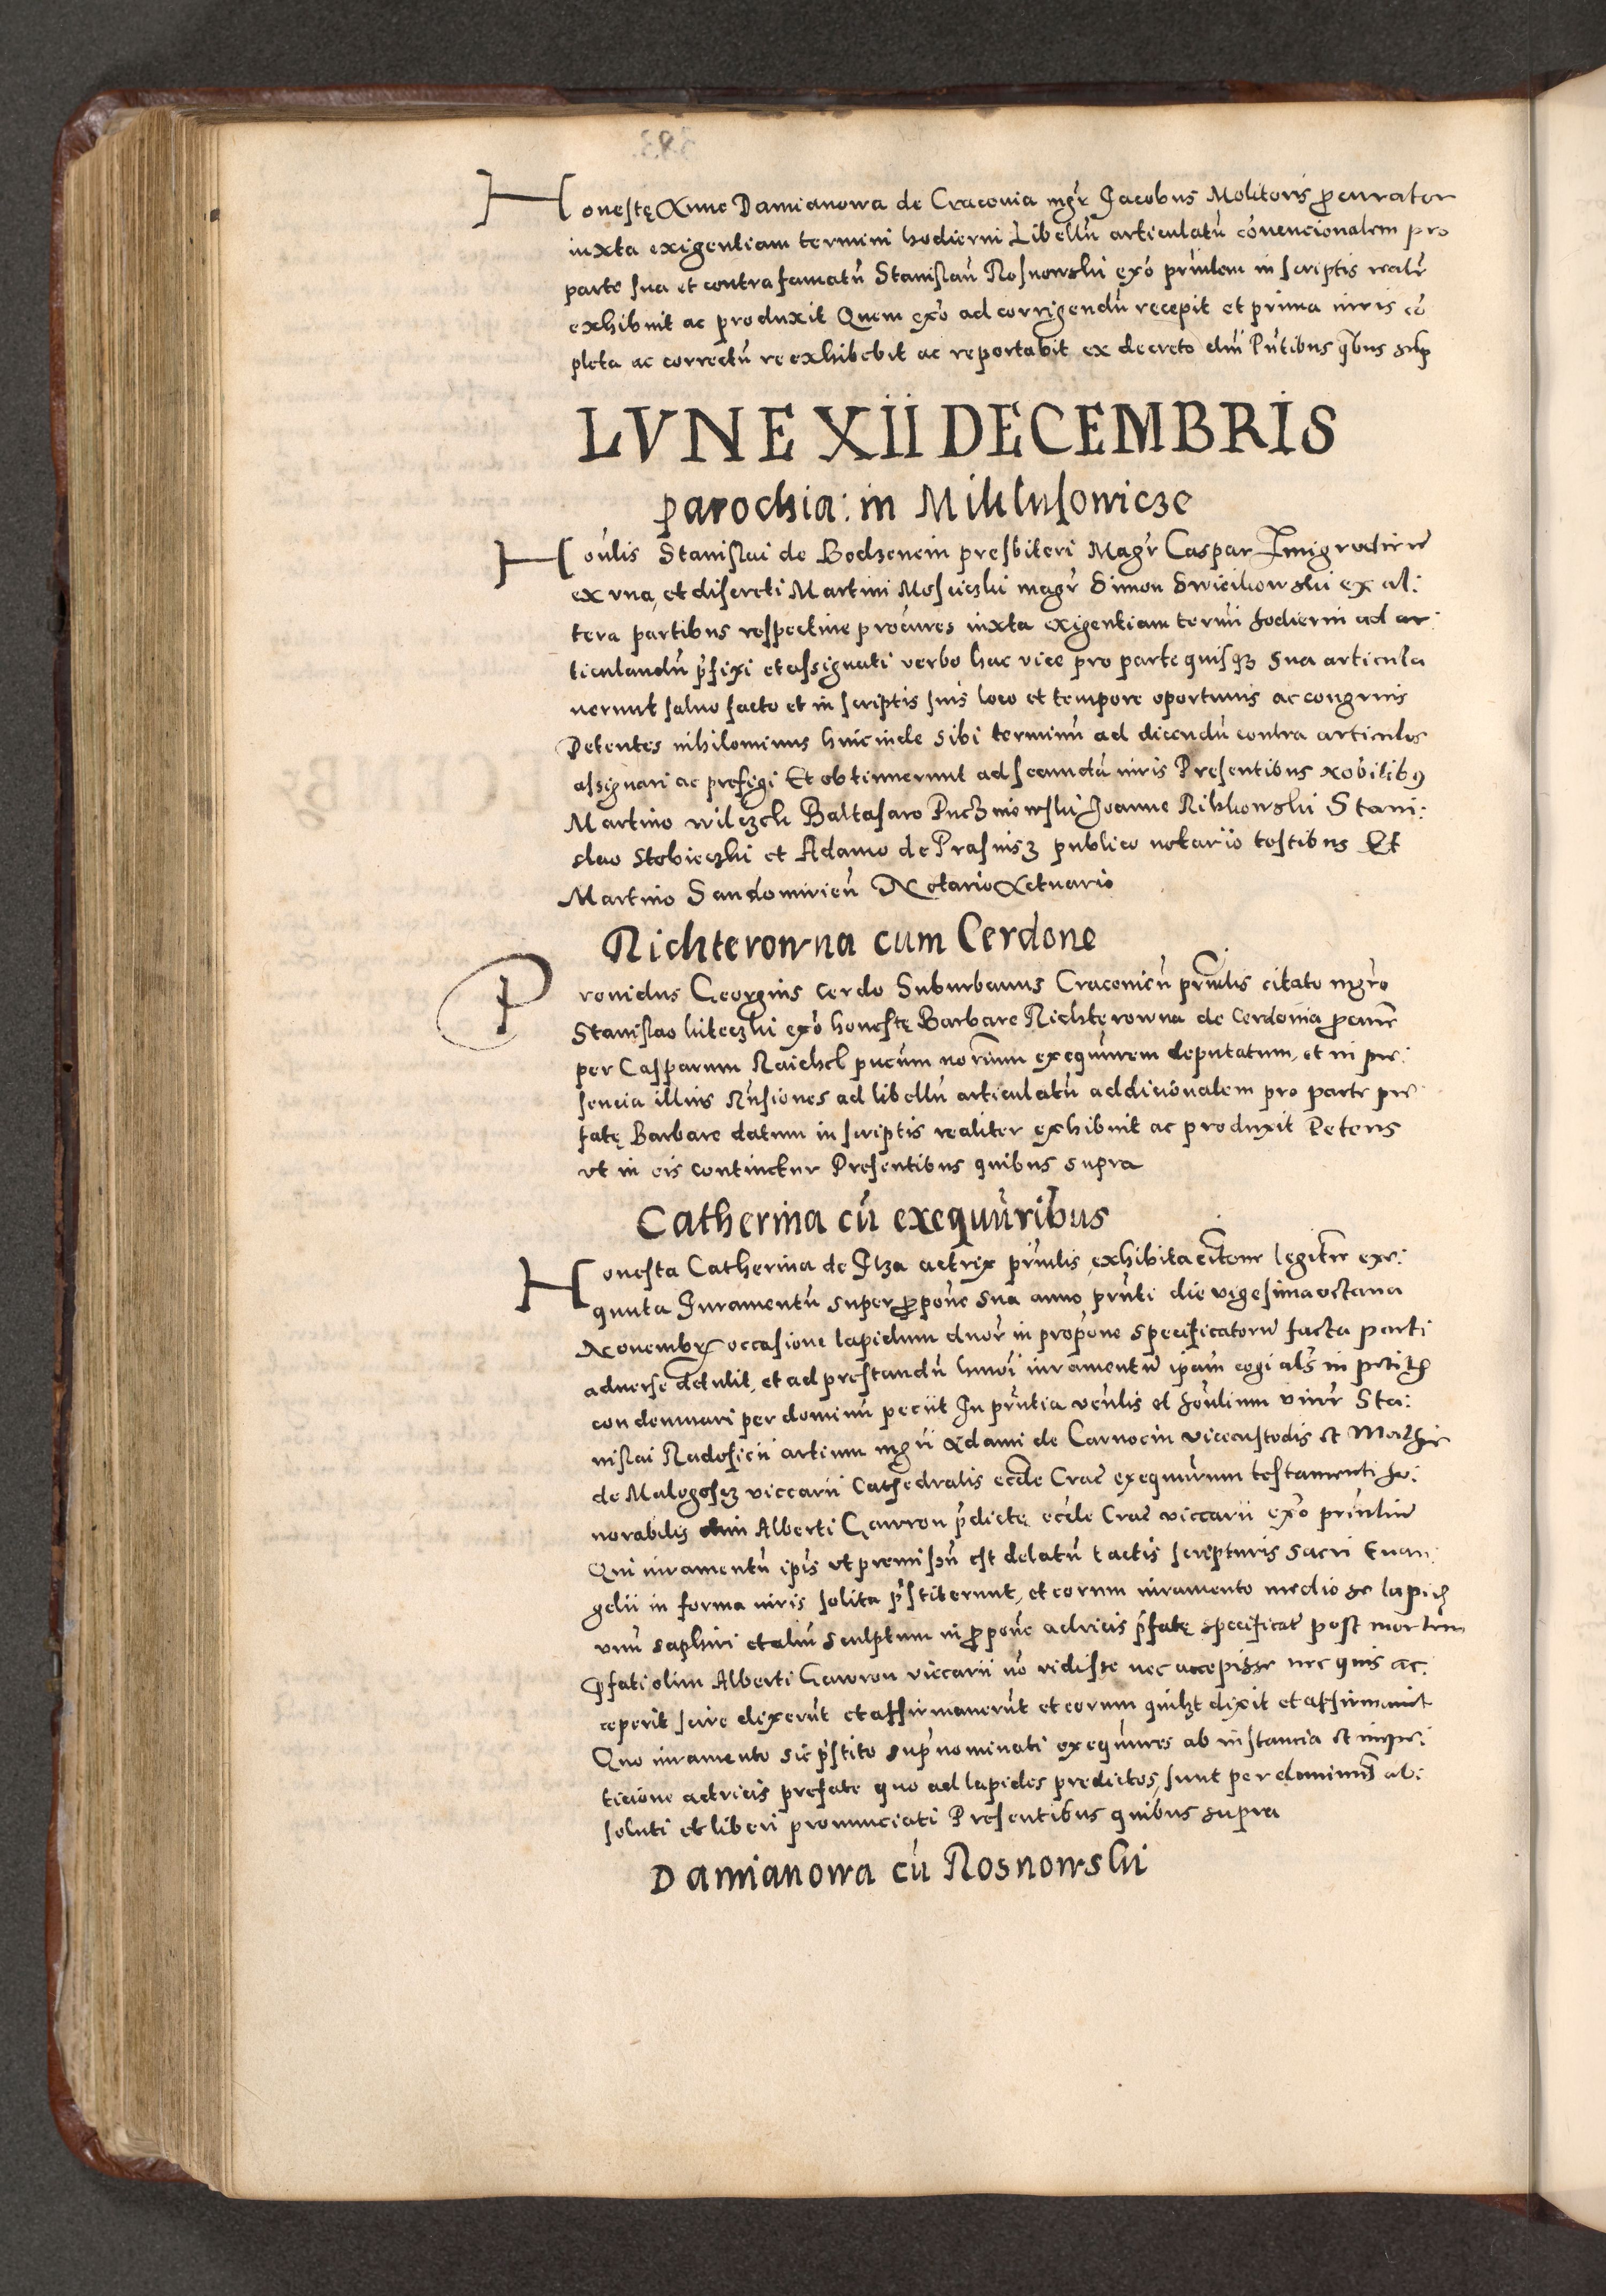 Honestę Anne Damianowa de Cracovia mgr Jacobus Molitoris procurator
iuxta exigentiam termini hodierni Libellū articulatū cōvencionalem pro
parte sua et contra famatū Stanislaū Rosnowski exō prīnlem in scriptis realr
exhibuit ac produxit Quem exō ad corrigendū recepit et prima iuris cō
pleta ac correctū reexhibebit ac reportabit ex decreto dni Pn̄tibus qbus sup
LVNE XII DECEMBRIS
parochia: in Mikluſowicze
Hon̄lis Stanislai de Bodzencin presbiteri Magr Caspar
ex vna, et discreti Martini Mosciczki magr Simon ex al:
tera partibus respective procures iuxta exigentiam termī hodierni ad ar:
ticulandū p̄fixi et assignati verbo hac vice pro parte quisqȝ sua articula
uerunt salvo facto et in scriptis suis loco et tempore oportunis ac congruis
Petentes nihilominus hincinde sibi terminū ad dicendū contra articulos
assignari ac prefigi Et obtinuerunt ad secundā iuris Presentibus Nobilibꝰ
Martino wilczek Baltasaro Joanne Rikkowski Stani:
slao Stobieczki et Adamo de Prasnisȝ publico notario testibus Et
Martino Sandomirien̄ Notario Actuario
Richterowna cum Cerdone
Providus Georgius Cerdo Suburbanus Cracovien̄ prīnlis citato mgrō
Stanislao kiteczki exō honestę Barbare Richterowna de Cerdonia procure
per Casparum Raichel pucum noriūm exequūrem deputatum, et in pre:
sencia illius Rn̄siones ad libellū articulatū addicionalem pro parte pre
fatę Barbare datum in scriptis realiter exhibuit ac produxit Petens
vt in eis continetur Presentibus quibus supra
Catherina cū exequūribus
Honesta Catherina de Ilza actrix prīnlis exhibita citōne legitēr exe:
quuta Juramentū super propōne sua anno prn̄ti die vigesima octava
Novembr occasione lapidum duor in propōne specificatorū facta parti
adverse detulit, et ad prestandū hmoī iuramentū ipām cogi als in petitꝭ
condemnari per dominū peciit In prn̄tia ven̄lis et hon̄lium viror Sta:
nislai Radosicii artium mgri Adami de Carnocin vicecustodis et Mathie
de Malogosçȝ viccarii Cathedralis eccle Crac̄ exequūrum testamenti ho:
norabilis olim Alberti Gawron p̄dicte eccle Crac̄ viccarii exō prīnliū
Qui iuramentū ipis vt premisū est delatū tactis scripturis sacri Evan:
gelii in forma iuris solita p̄stiterunt, et eorum iuramento medio se lapidꝭ
unū saphiri et aliū sculptum in propōne actricis p̄fatę specificat post mortem
p̄fati olim Alberti Gawron viccarii nō vidisse nec accepisse nec quis ac:
ceperit scire dixerūt et affirmaverūt et eorum quilȝt dixit et affirmavit
Quo iuramento sic p̄stito sup̄nominati exequūres ab instancia et impe:
ticione actricis prefate quo ad lapides predictos, sunt per dominum ab:
soluti et liberi pronunciati Presentibus quibus supra
Damianowa cū Rosnowski